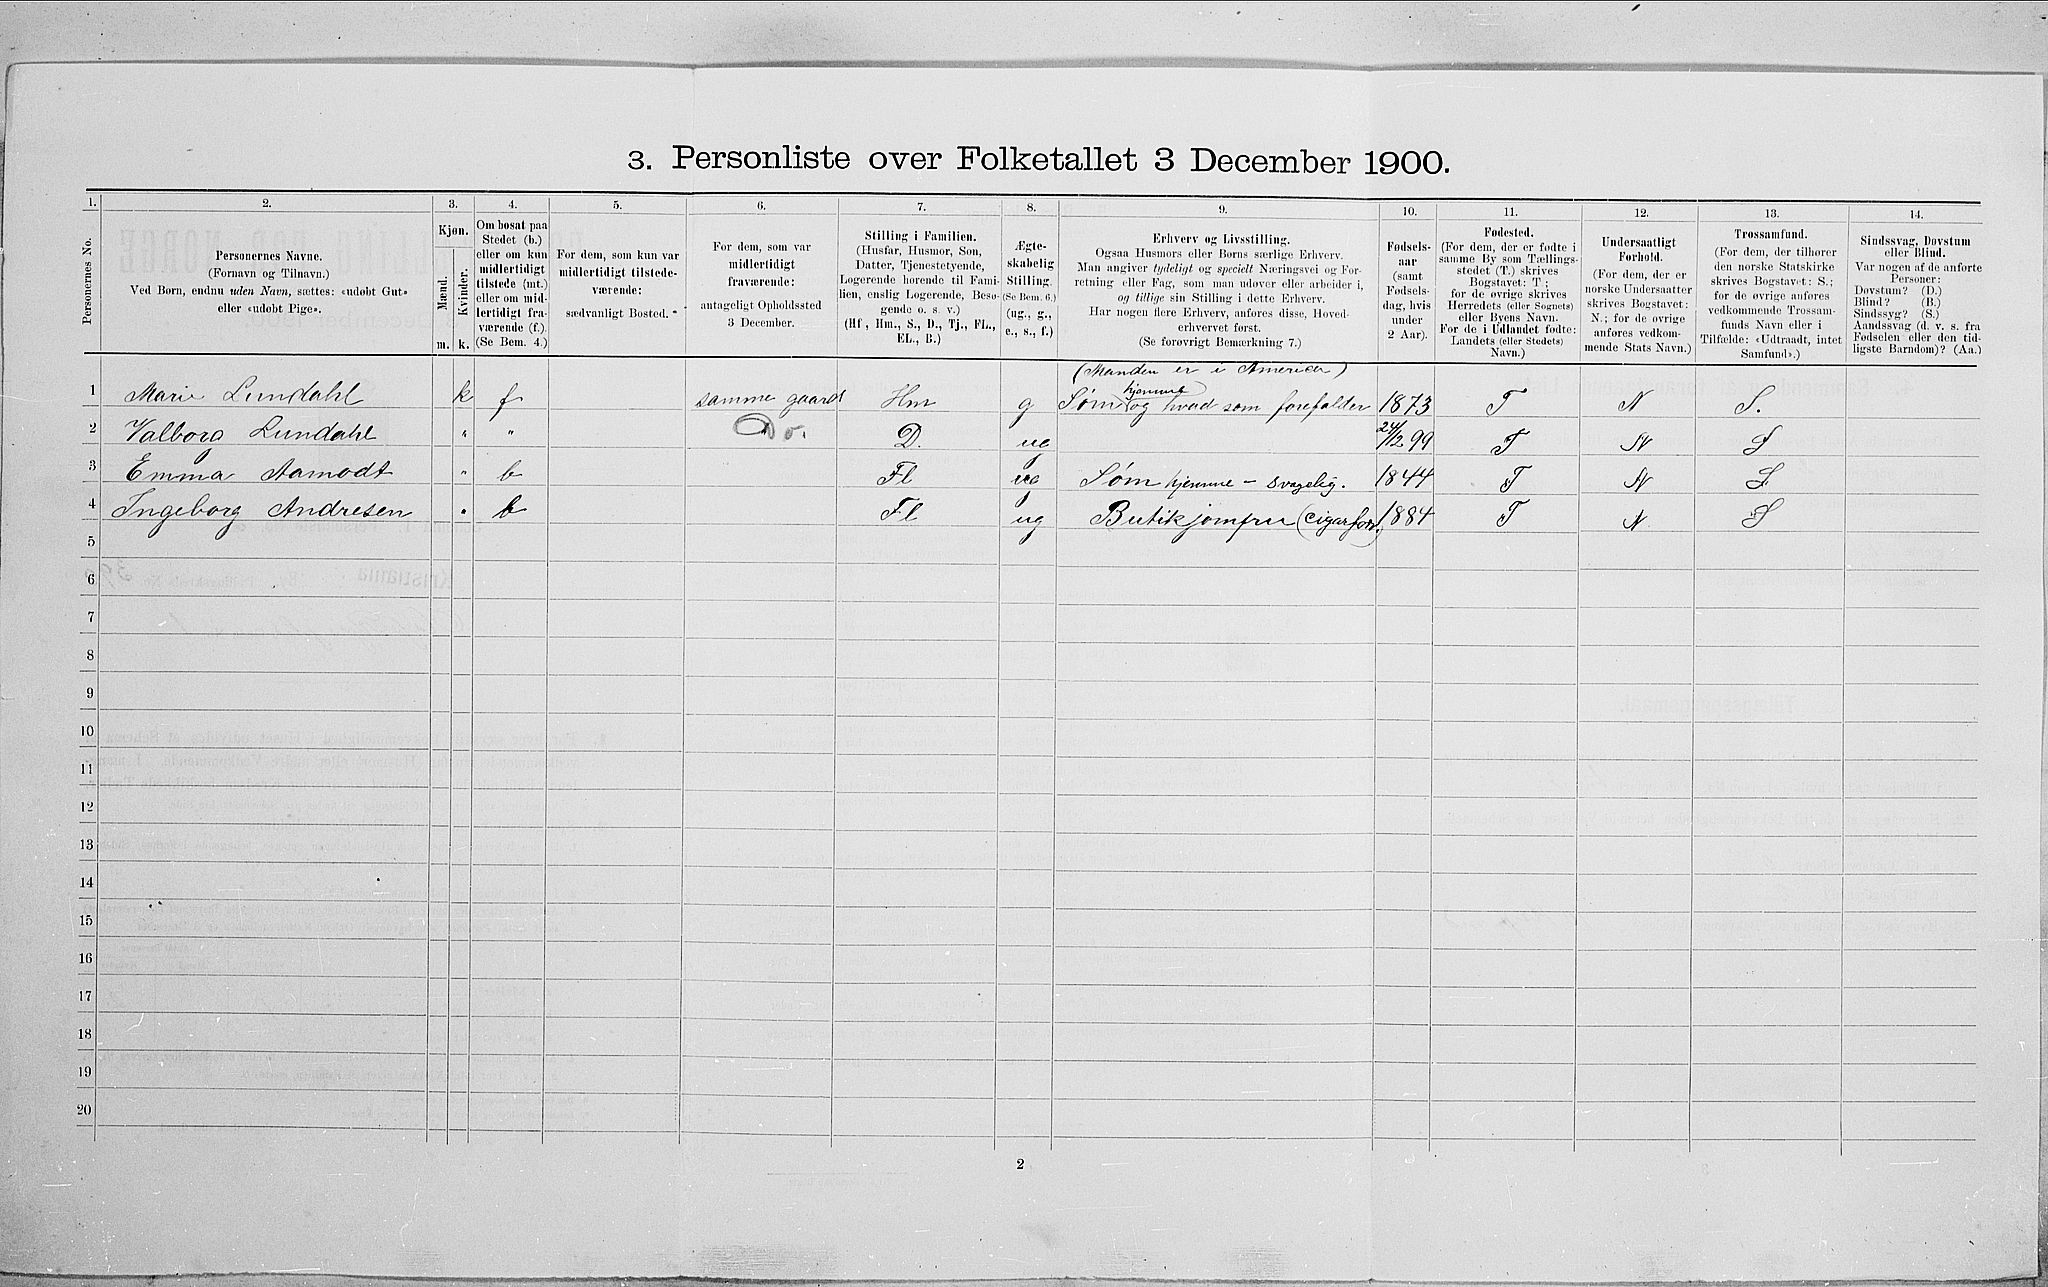 3. Personliste over Folketallet 3 December 1900.
1. 2. 3. 4. 5. 6. 7. 8. 9. 10. 11. 12. 13. 14.
Personernes No.
Personernes Navne.
(Fornavn og Tilnavn.)
Ved Børn, endnu uden Navn, sættes: «udøbt Gut»
eller «udøbt Pige».
Kjøn.
Mænd.
Kvinder.
m. k.
Om bosat paa
Stedet (b.)
eller om kun
midlertidigt
tilstede (mt.)
eller om mid-
lertidigt fra-
værende (f.)
(Se Bem. 4.)
For dem, som kun var
midlertidigt tilstede-
værende:
sædvanligt Bosted.
For dem, som var
midlertidigt
fraværende:
antageligt Opholdssted
3 December.
Stilling i Familien.
(Husfar, Husmor, Søn,
Datter, Tjenestetyende,
Logerende hørende til Fami-
lien, enslig Logerende, Besø-
gende o. s. v.)
(Hf., Hm., S., D., Tj., FL.,
EL., B.)
Ægte-
skabelig
Stilling.
(Se Bem. 6.)
(ug., g.,
e., s., f.)
Erhverv og Livsstilling.
Ogsaa Husmors eller Børns særlige Erhverv.
Man angiver tydeligt og specielt Næringsvei og For-
retning eller Fag, som man udøver eller arbeider i,
og tillige sin Stilling i dette Erhverv.
Har nogen flere Erhverv, anføres disse, Hoved-
erhvervet først.
(Se forøvrigt Bemærkning 7.)
Fødsels-
aar
(samt
Fødsels-
dag, hvis
under
2 Aar).
Fødested.
(For dem, der er fødte i
samme By som Tællings-
stedet (T.) skrives
Bogstavet: T ;
for de øvrige skrives
Herredets (eller Sognets)
eller Byens Navn.
For de i Udlandet fødte:
Landets (eller Stedets)
Navn.)
Undersaatligt
Forhold.
(For dem, der er
norske Undersaatter
skrives Bogstavet:
N.; for de øvrige
anføres vedkom-
mende Stats Navn.)
Trossamfund.
(For dem, der tilhører
den norske Statskirke
skrives Bogstavet: S.;
for de øvrige anføres
vedkommende Trossam-
funds Navn eller i
Tilfælde: «Udtraadt, intet
Samfund».)
Sindssvag, Døvstum
eller Blind.
Var nogen af de anførte
Personer:
Døvstum? (D.)
Blind? (B.)
Sindssyg? (S.)
Aandssvag (d. v. s. fra
Fødselen eller den tid-
ligste Barndom)? (Aa.)
(Manden er i America)
hjemme
1 Marie Lundahl k f samme gaard Hm g Søm og hvad som forefalder 1873 T N S.
2 Valborg Lundahl " " Do. D. ug 24/12 99 T N S
3 Emma Aamodt " b Fl ug Søm hjemme - svagelig. 1844 T N S
4 Ingeborg Andresen " b Fl ug Butikjomfru (cigarforr.) 1884 T N S
5
6
7
8
9
10
11
12
13
14
15
16
17
18
19
20
2